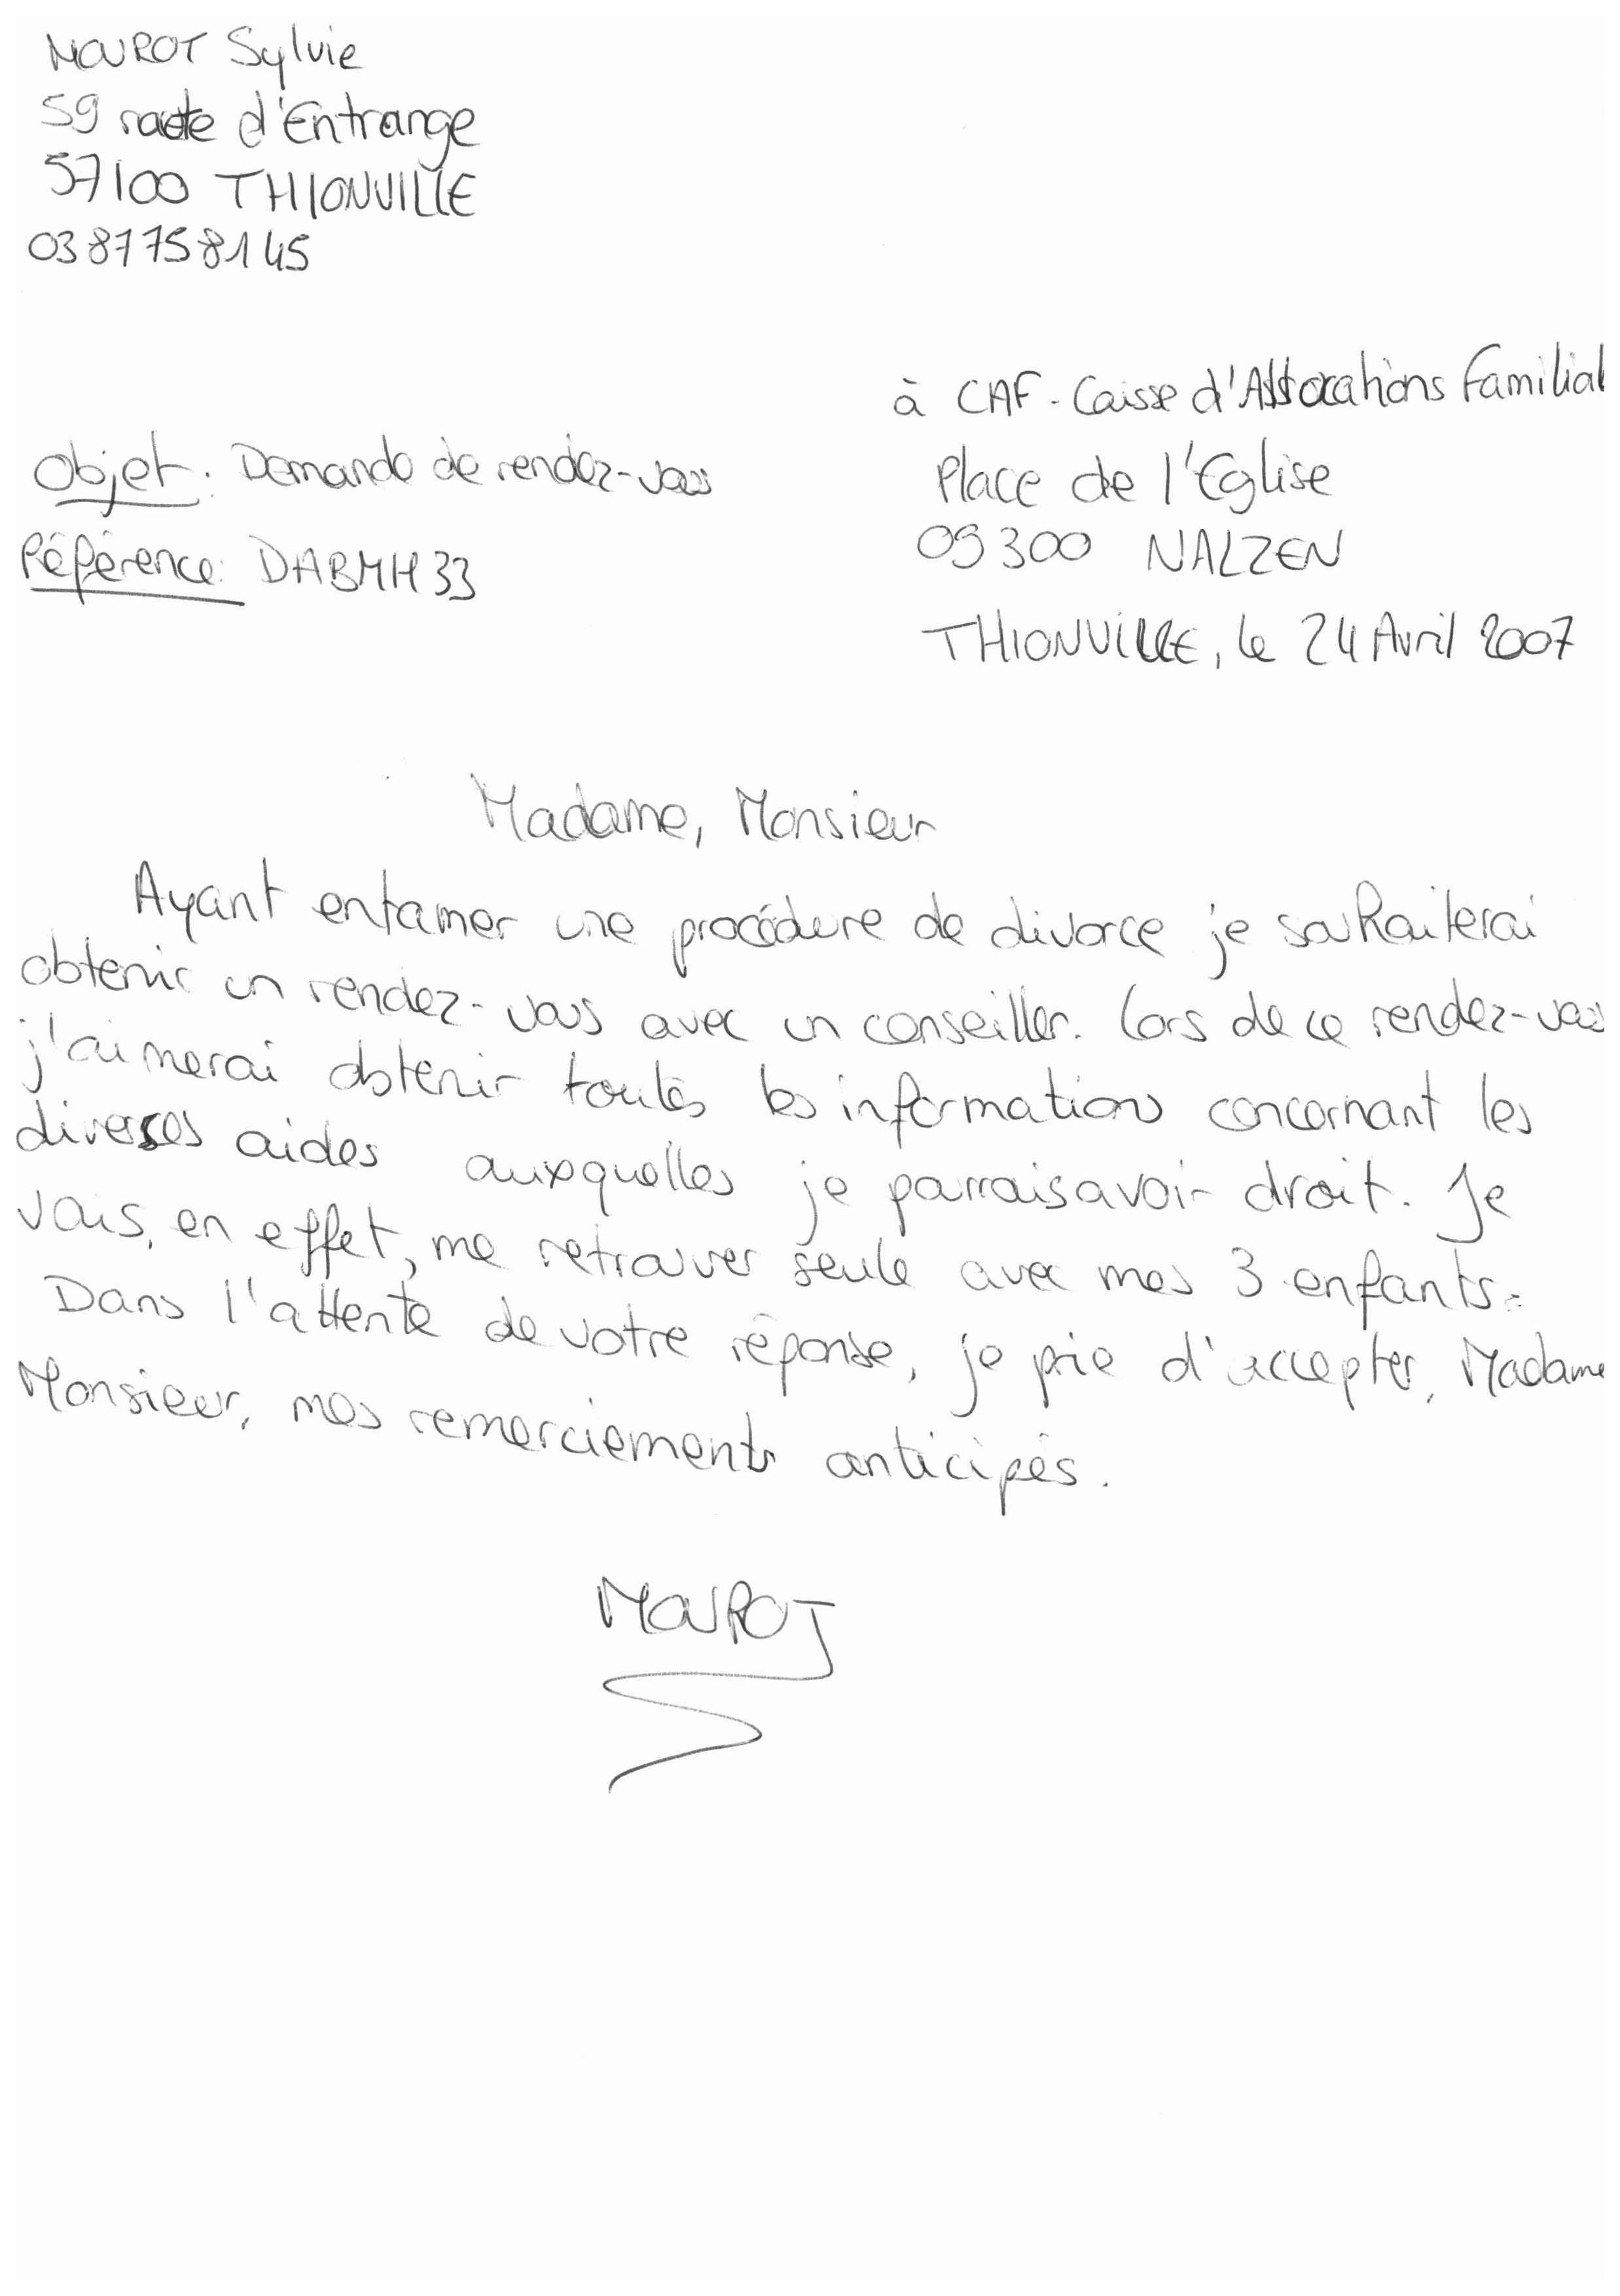 MOUROT Sylvie
59 route d'Entrange
57100 THIONVILLE
0387758145
à CAF - Caisse d'Allocations Familial
Objet : Demande de rendez-vous
Place de l'Eglise
Référence : DABMH33
09300 NALZEN
THIONVILLE, le 24 Avril 2007
Madame, Monsieur
Ayant entamer une procédure de divorce je souhaiterai
obtenir un rendez-vous avec un conseiller. Lors de ce rendez-vous
j'aimerai obtenir toutes les informations concernant les
diverses aides auxquelles je pourrais avoir droit. Je
vais, en effet, me retrouver seule avec mes 3 enfants.
Dans l'attente de votre réponse, je prie d'accepter, Madame
Monsieur, mes remerciements anticipés.
MOUROT